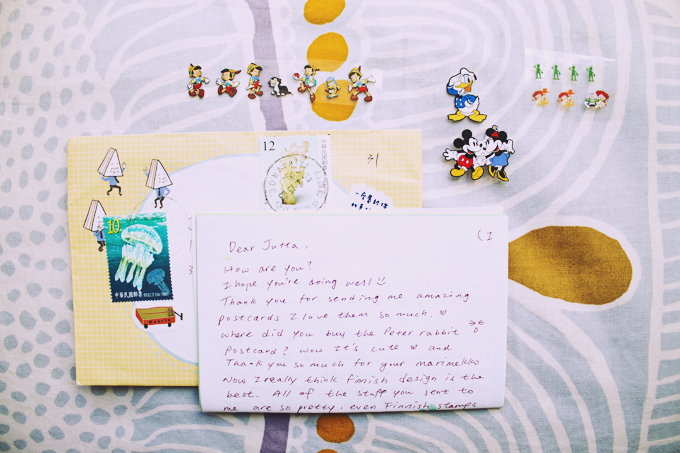 12
10
中華民國郵票
Dear Jutta,
(1
How are you?
I hope you're doing well!
Thank you for sending me amazing
postcards I love them so much.
where did you buy the Peter rabbit
postcard? wow It's cute and
Thank you so much for your marimekko
Now I really think finnish design is the
best. All of the stuff you sent to
me are so pretty, even Finnish stamps